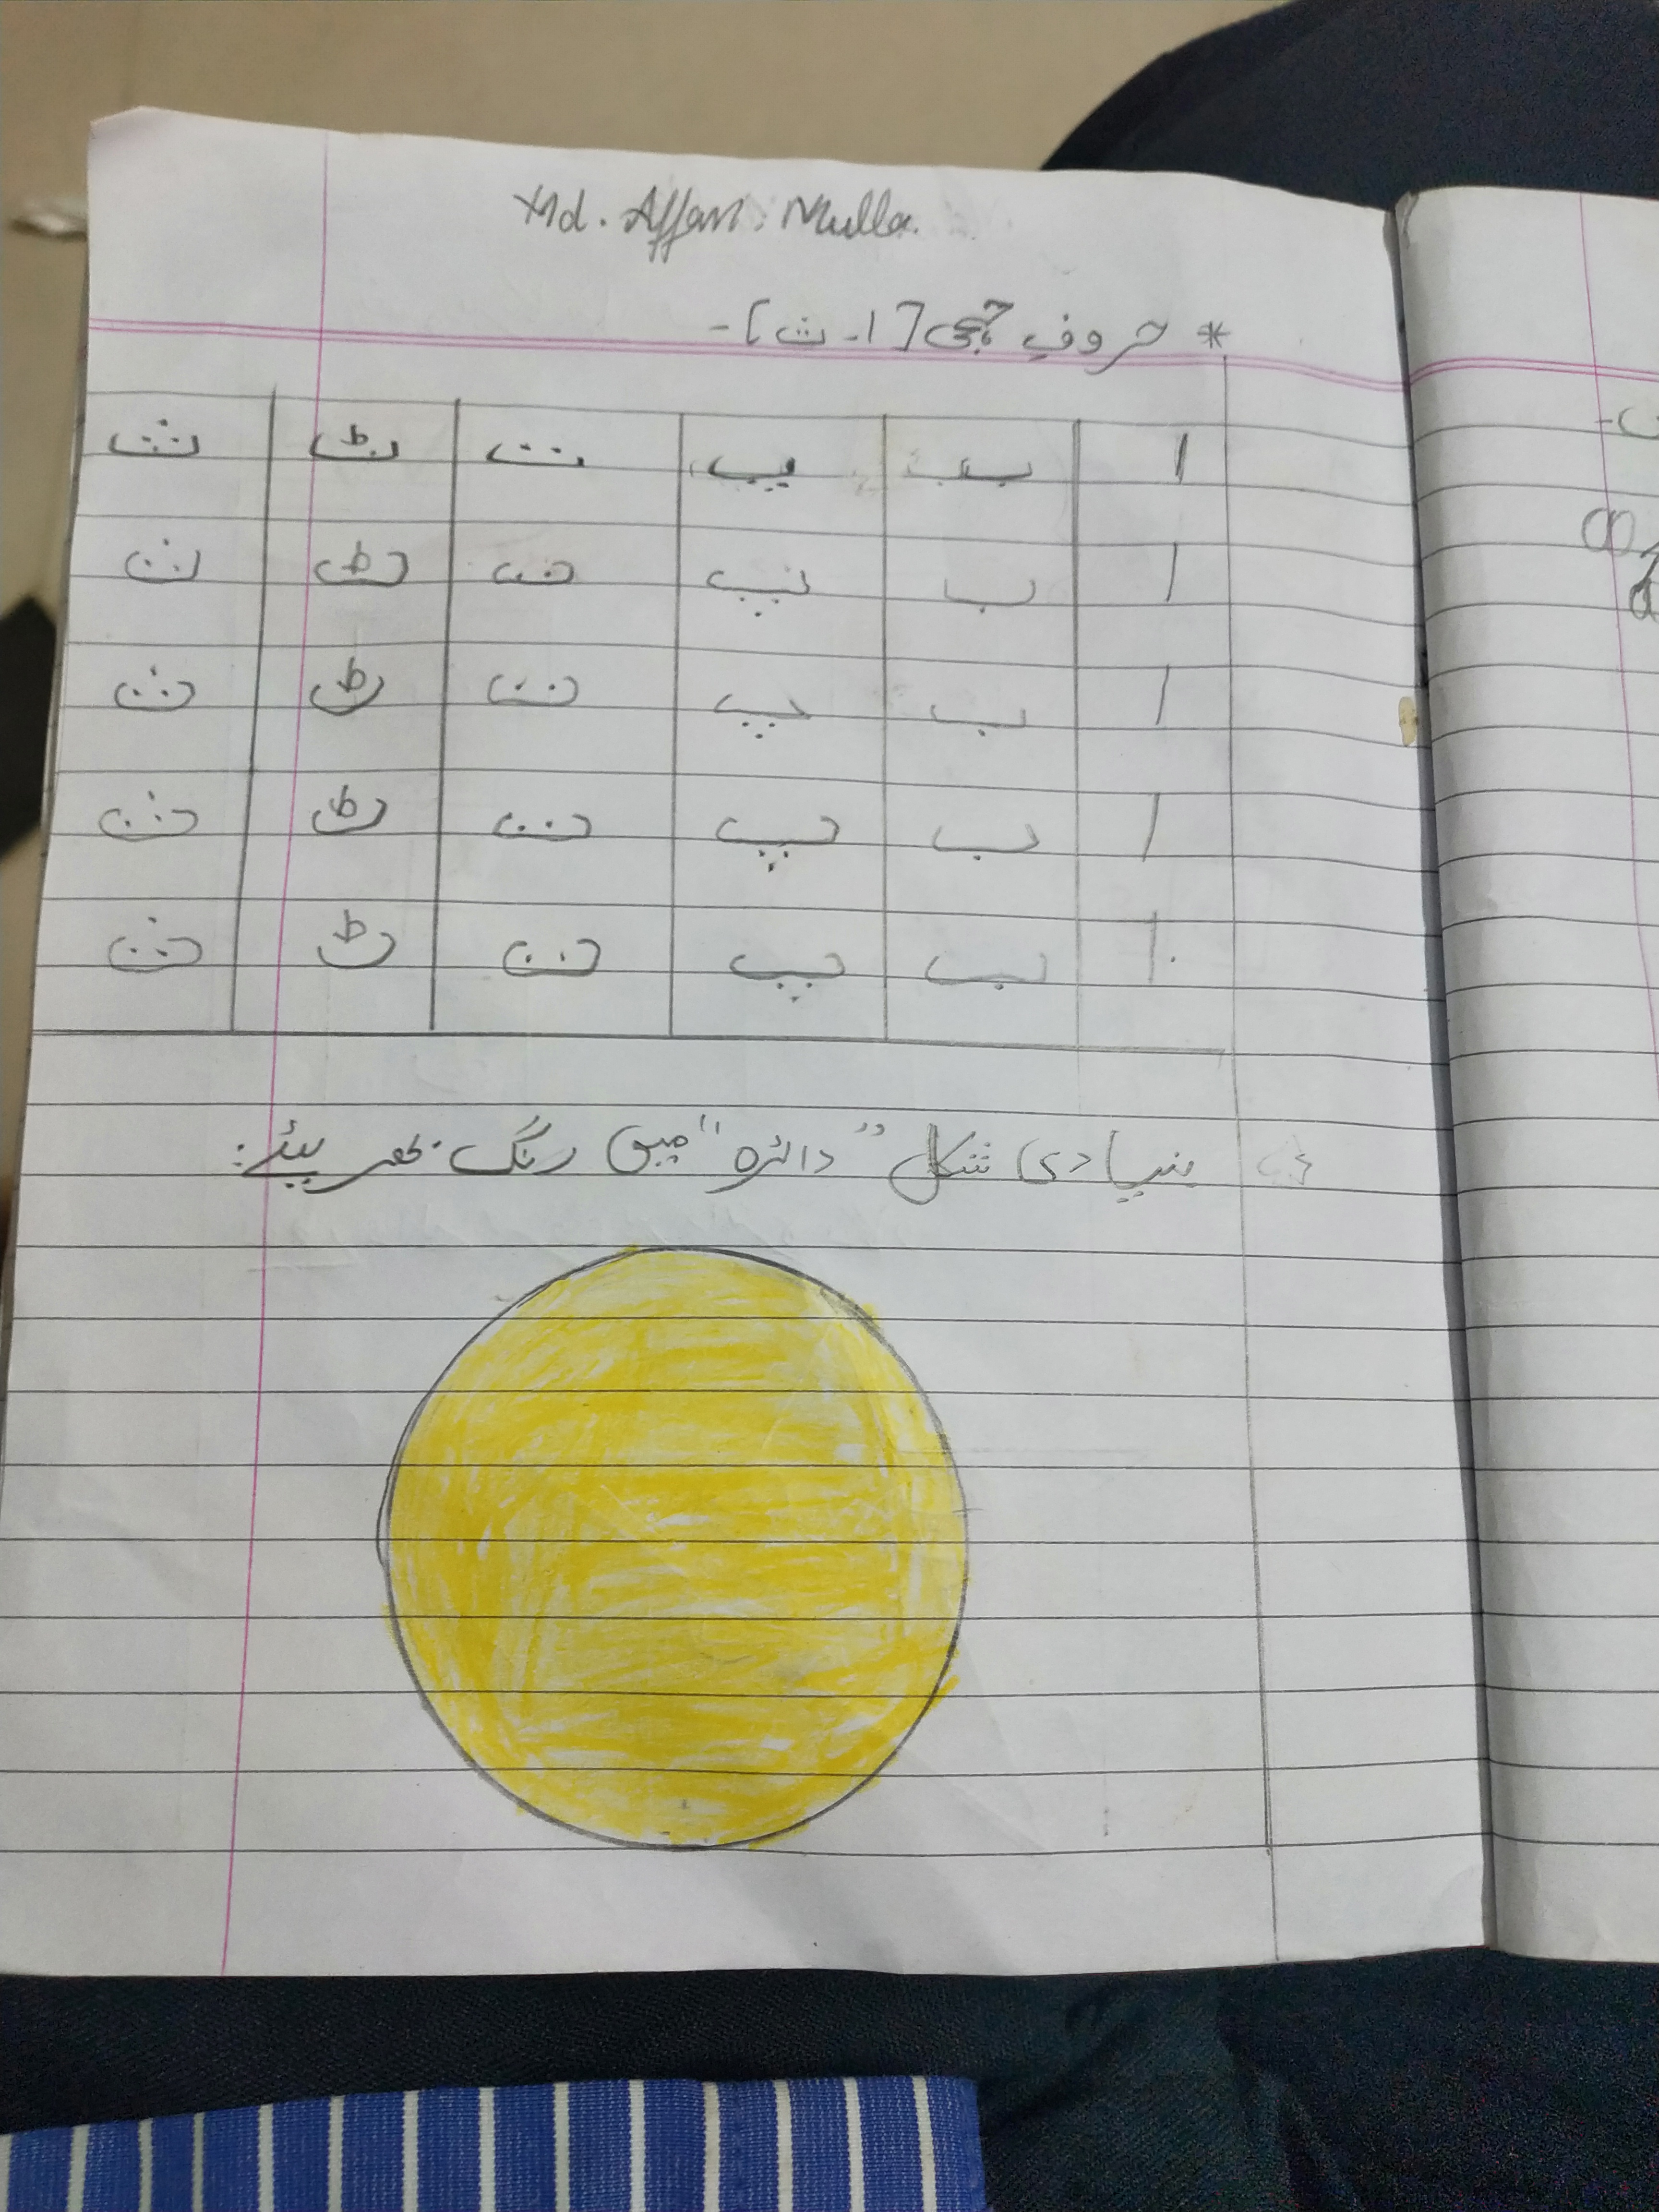 Md. Affan. Mulla.
* حروفِ تہجی [ا۔ث]۔
ا ب پ ت ٹ ث
ا ب پ ت ٹ ث
ا ب پ ت ٹ ث
ا ب پ ت ٹ ث
ا ب پ ت ٹ ث
بنیادی شکل "دائرہ" میں رنگ بھریئے: